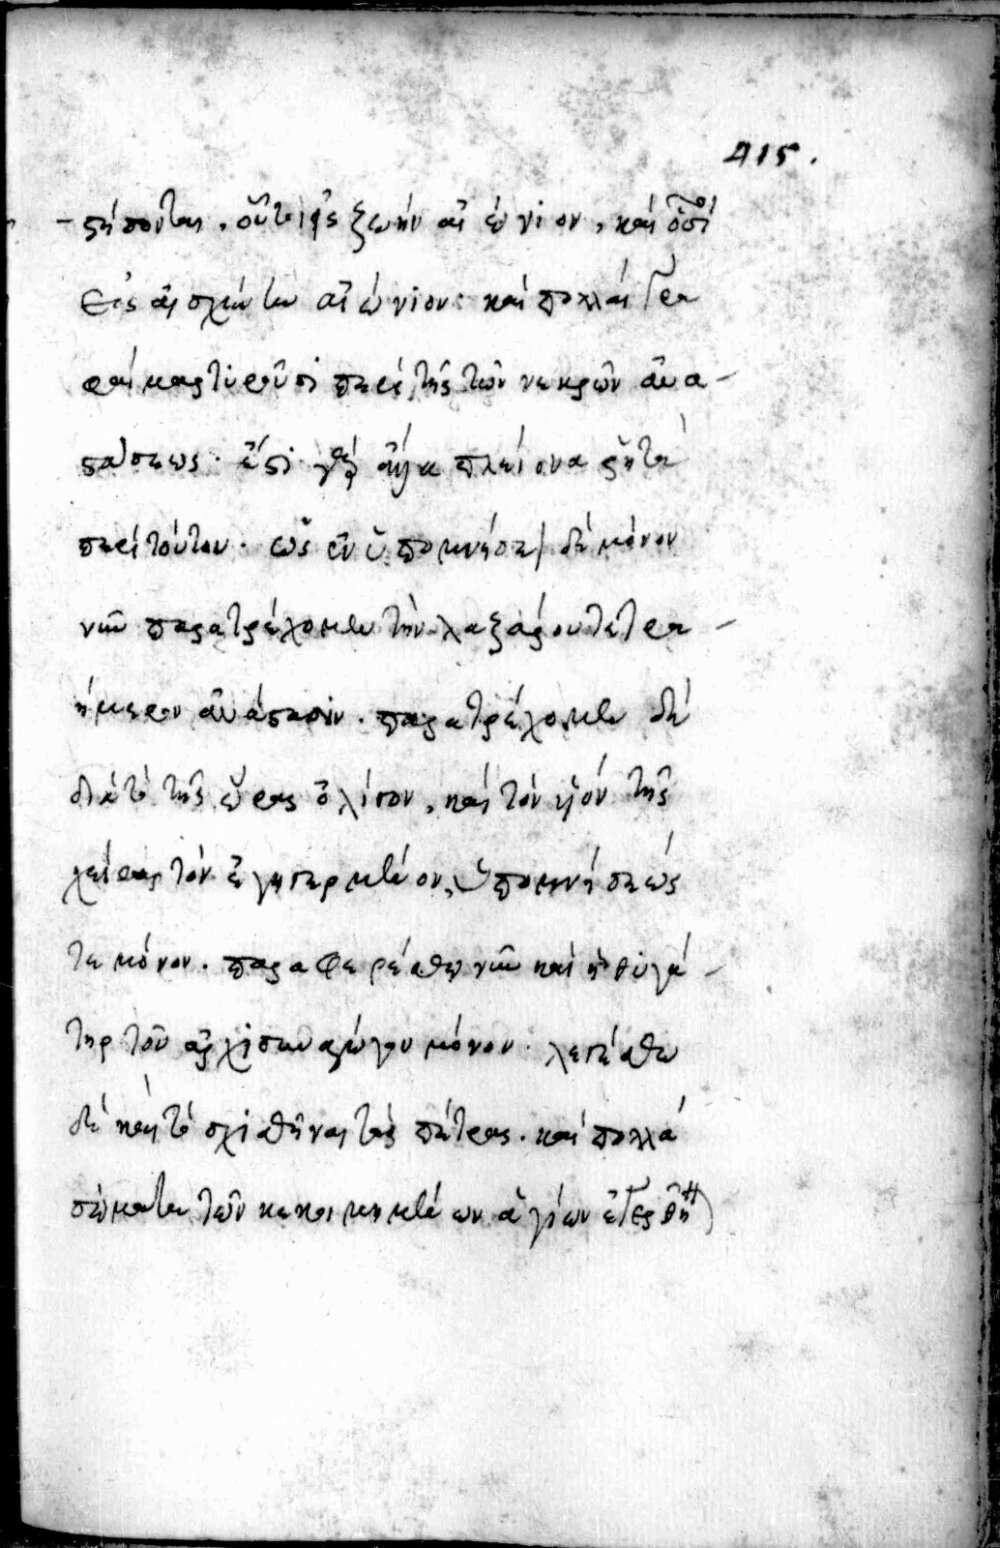 415.
στήσονται. οὗτοι εἰς ζωὴν αἰώνιον, καὶ οὗτοι
εἰς αἰσχύνην αἰώνιον· καὶ πολλαὶ γρα
φαὶ μαρτυροῦσι περὶ τῆς τῶν νεκρῶν ἀνα-
στάσεως· ἔστι γὰρ καὶ πλείονα ῥητὰ
περὶ τούτου· ὡς ἐν ὑπομνήσει δὲ μόνον
νῦν παρατρέχομεν τὴν λαζάρου τετρα-
ήμερον ἀνάστασιν. παρατρέχομεν δὲ
διὰ τὸ τῆς ὥρας ὀλίγον, καὶ τὸν υἱὸν τῆς
χήρας τὸν ἐγηγερμένον, ὑπομνήσεώς
τε μόνον. παραφερέσθω νῦν καὶ ἡ θυγά-
τηρ τοῦ ἀρχισυναγώγου μόνον· λεγέσθω
δὲ καὶ τὸ σχισθῆναι τὰς πέτρας. καὶ πολλὰ
σώματα τῶν κεκοιμημένων ἁγίων ἐγερθῆ